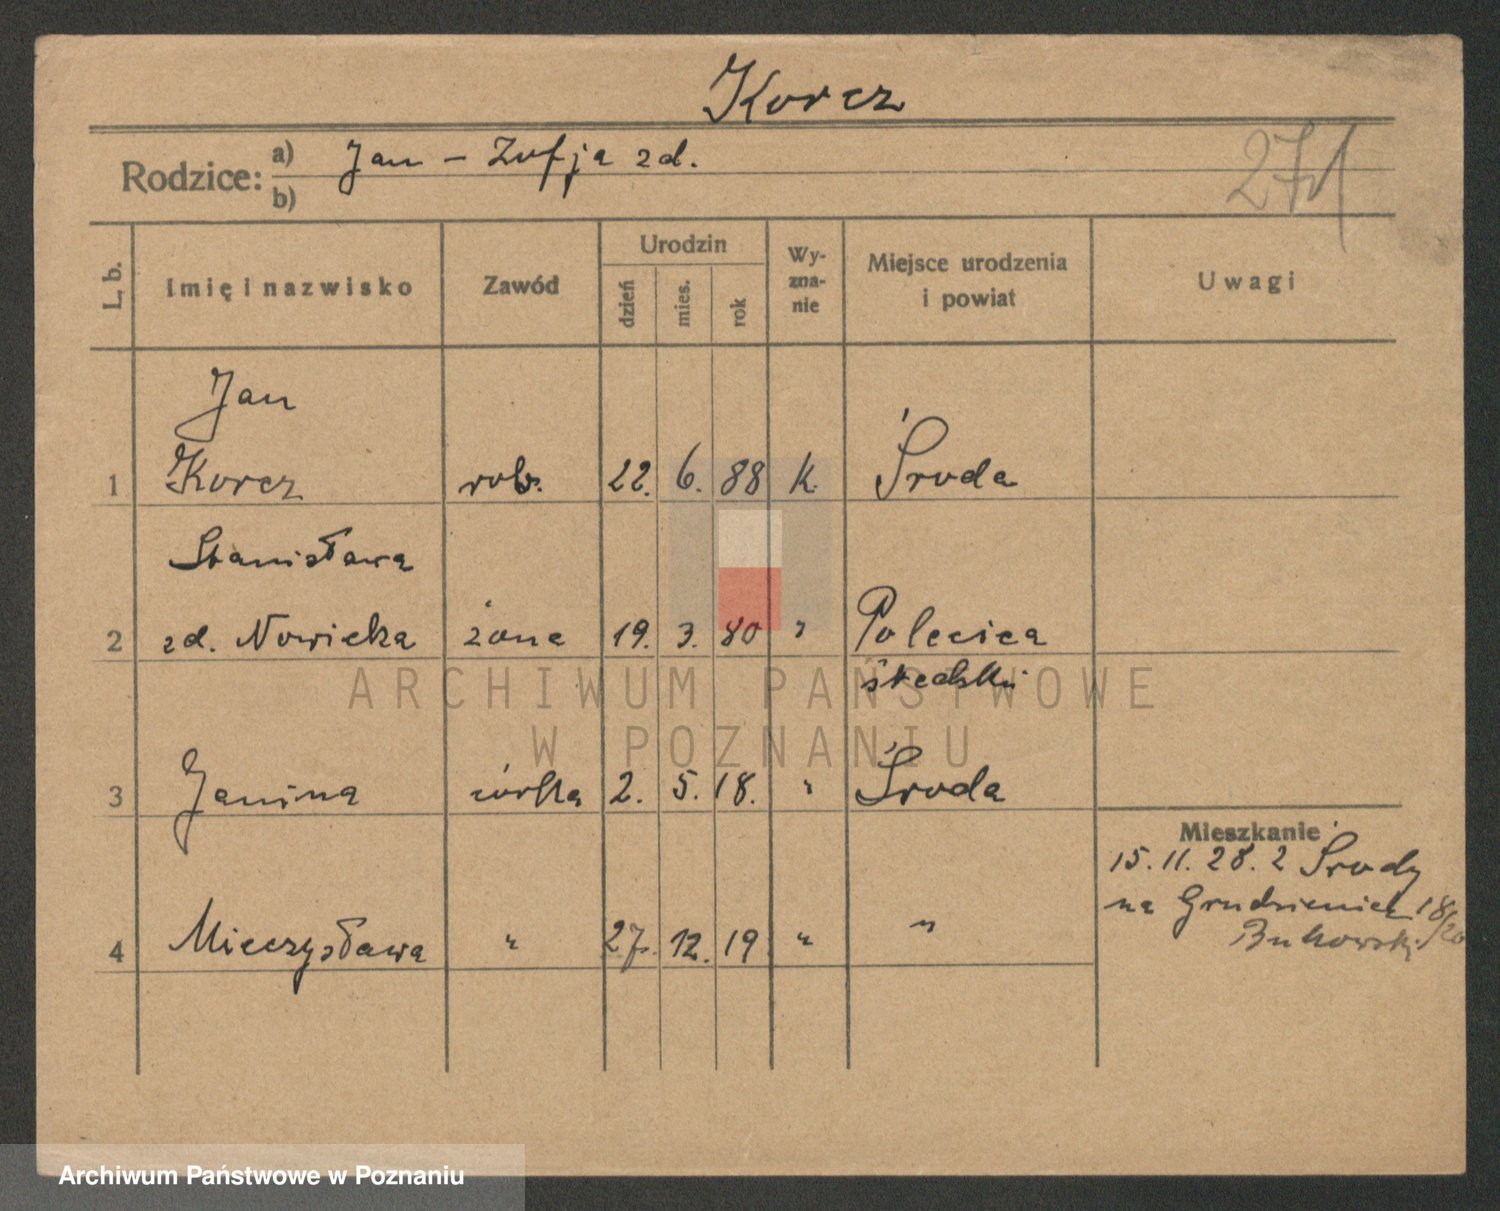 Korcz
Rodzice: a) Jan – Zofja zd.
b)
271
L. b.
Imię i nazwisko
Zawód
Urodzin
dzień
mies.
rok
Wy-
zna-
nie
Miejsce urodzenia
i powiat
Uwagi
Jan
1 Korcz rob. 22. 6. 88 k. Środa
Stanisława
2 zd. Nowicka żona 19. 3. 80 " Polecica
średzki
3 Janina córka 2. 5. 18. " Środa
Mieszkanie
15. 11. 28. z Środy
na Grudzieniec 18/20
Bukowski
4 Mieczysława " 27. 12. 19 " "
ARCHIWUM PAŃSTWOWE
W POZNANIU
Archiwum Państwowe w Poznaniu